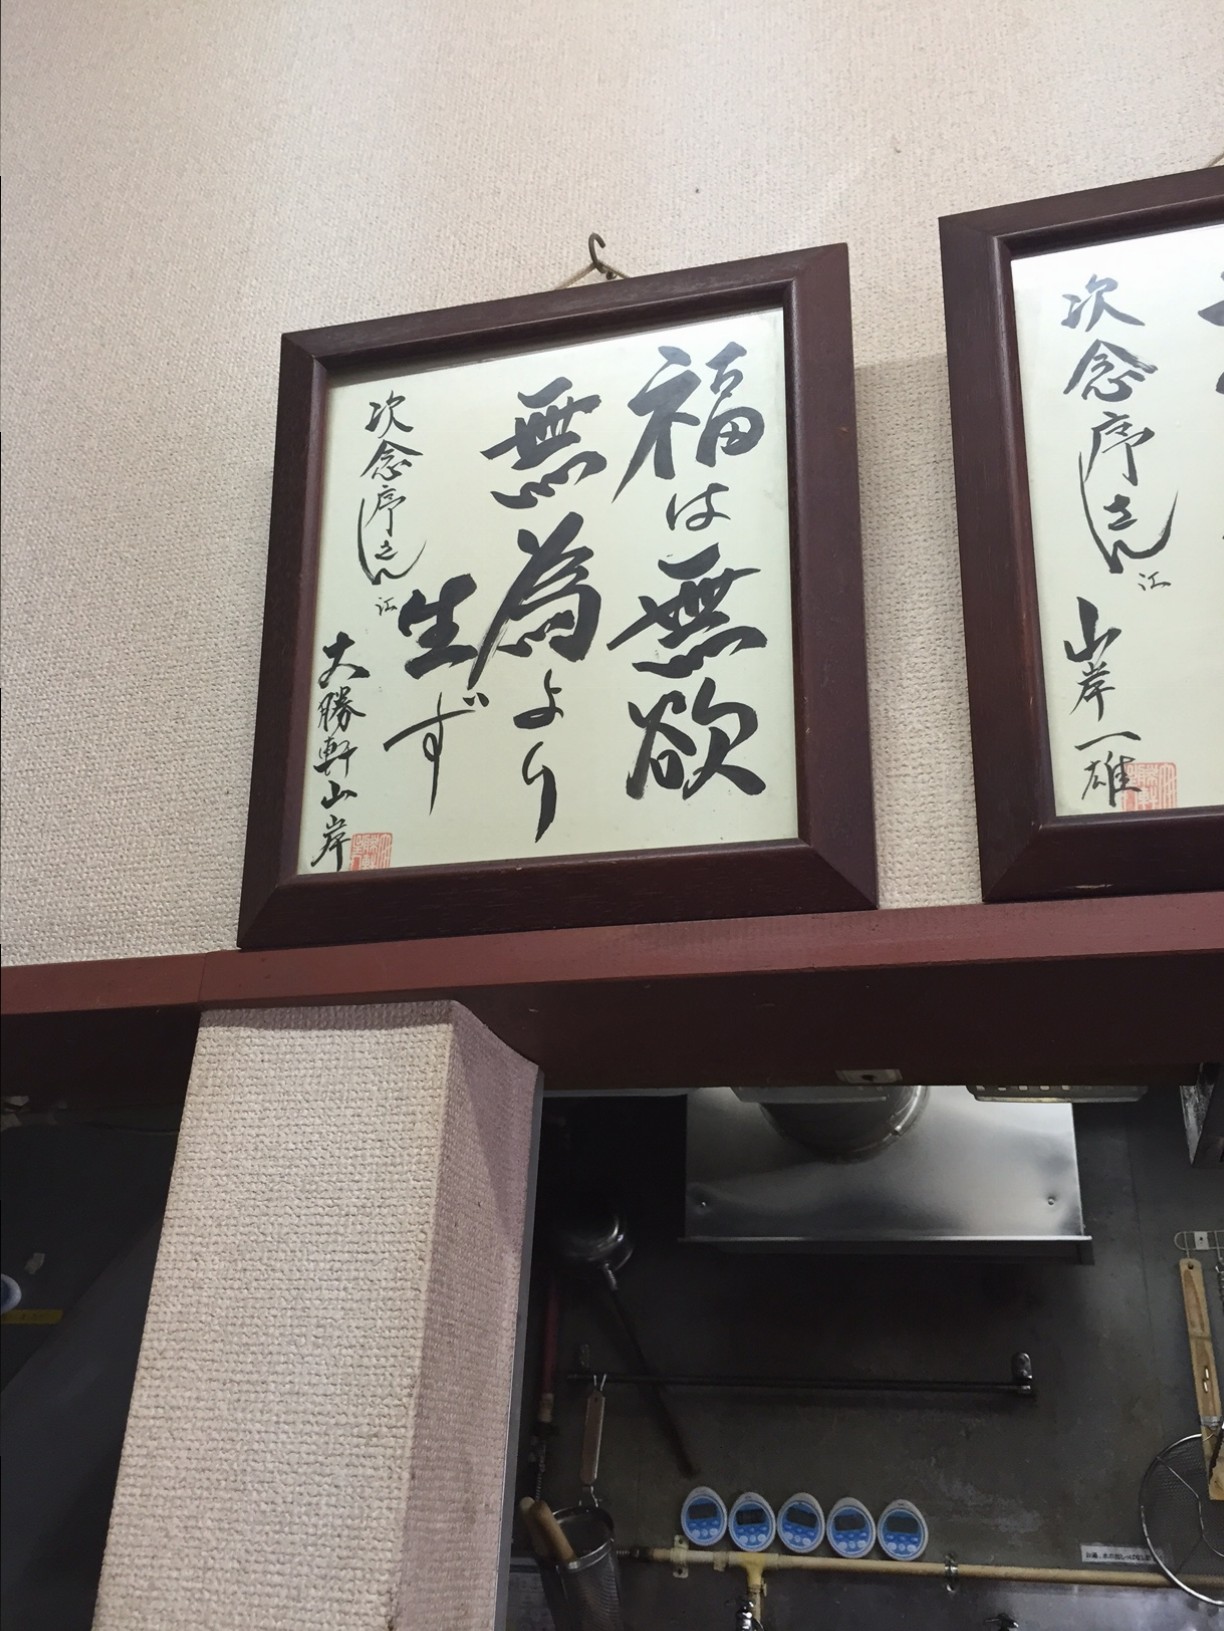 福は無欲
無為より
生ず
次念序さん江
大勝軒山岸
次念序さん江
山岸一雄